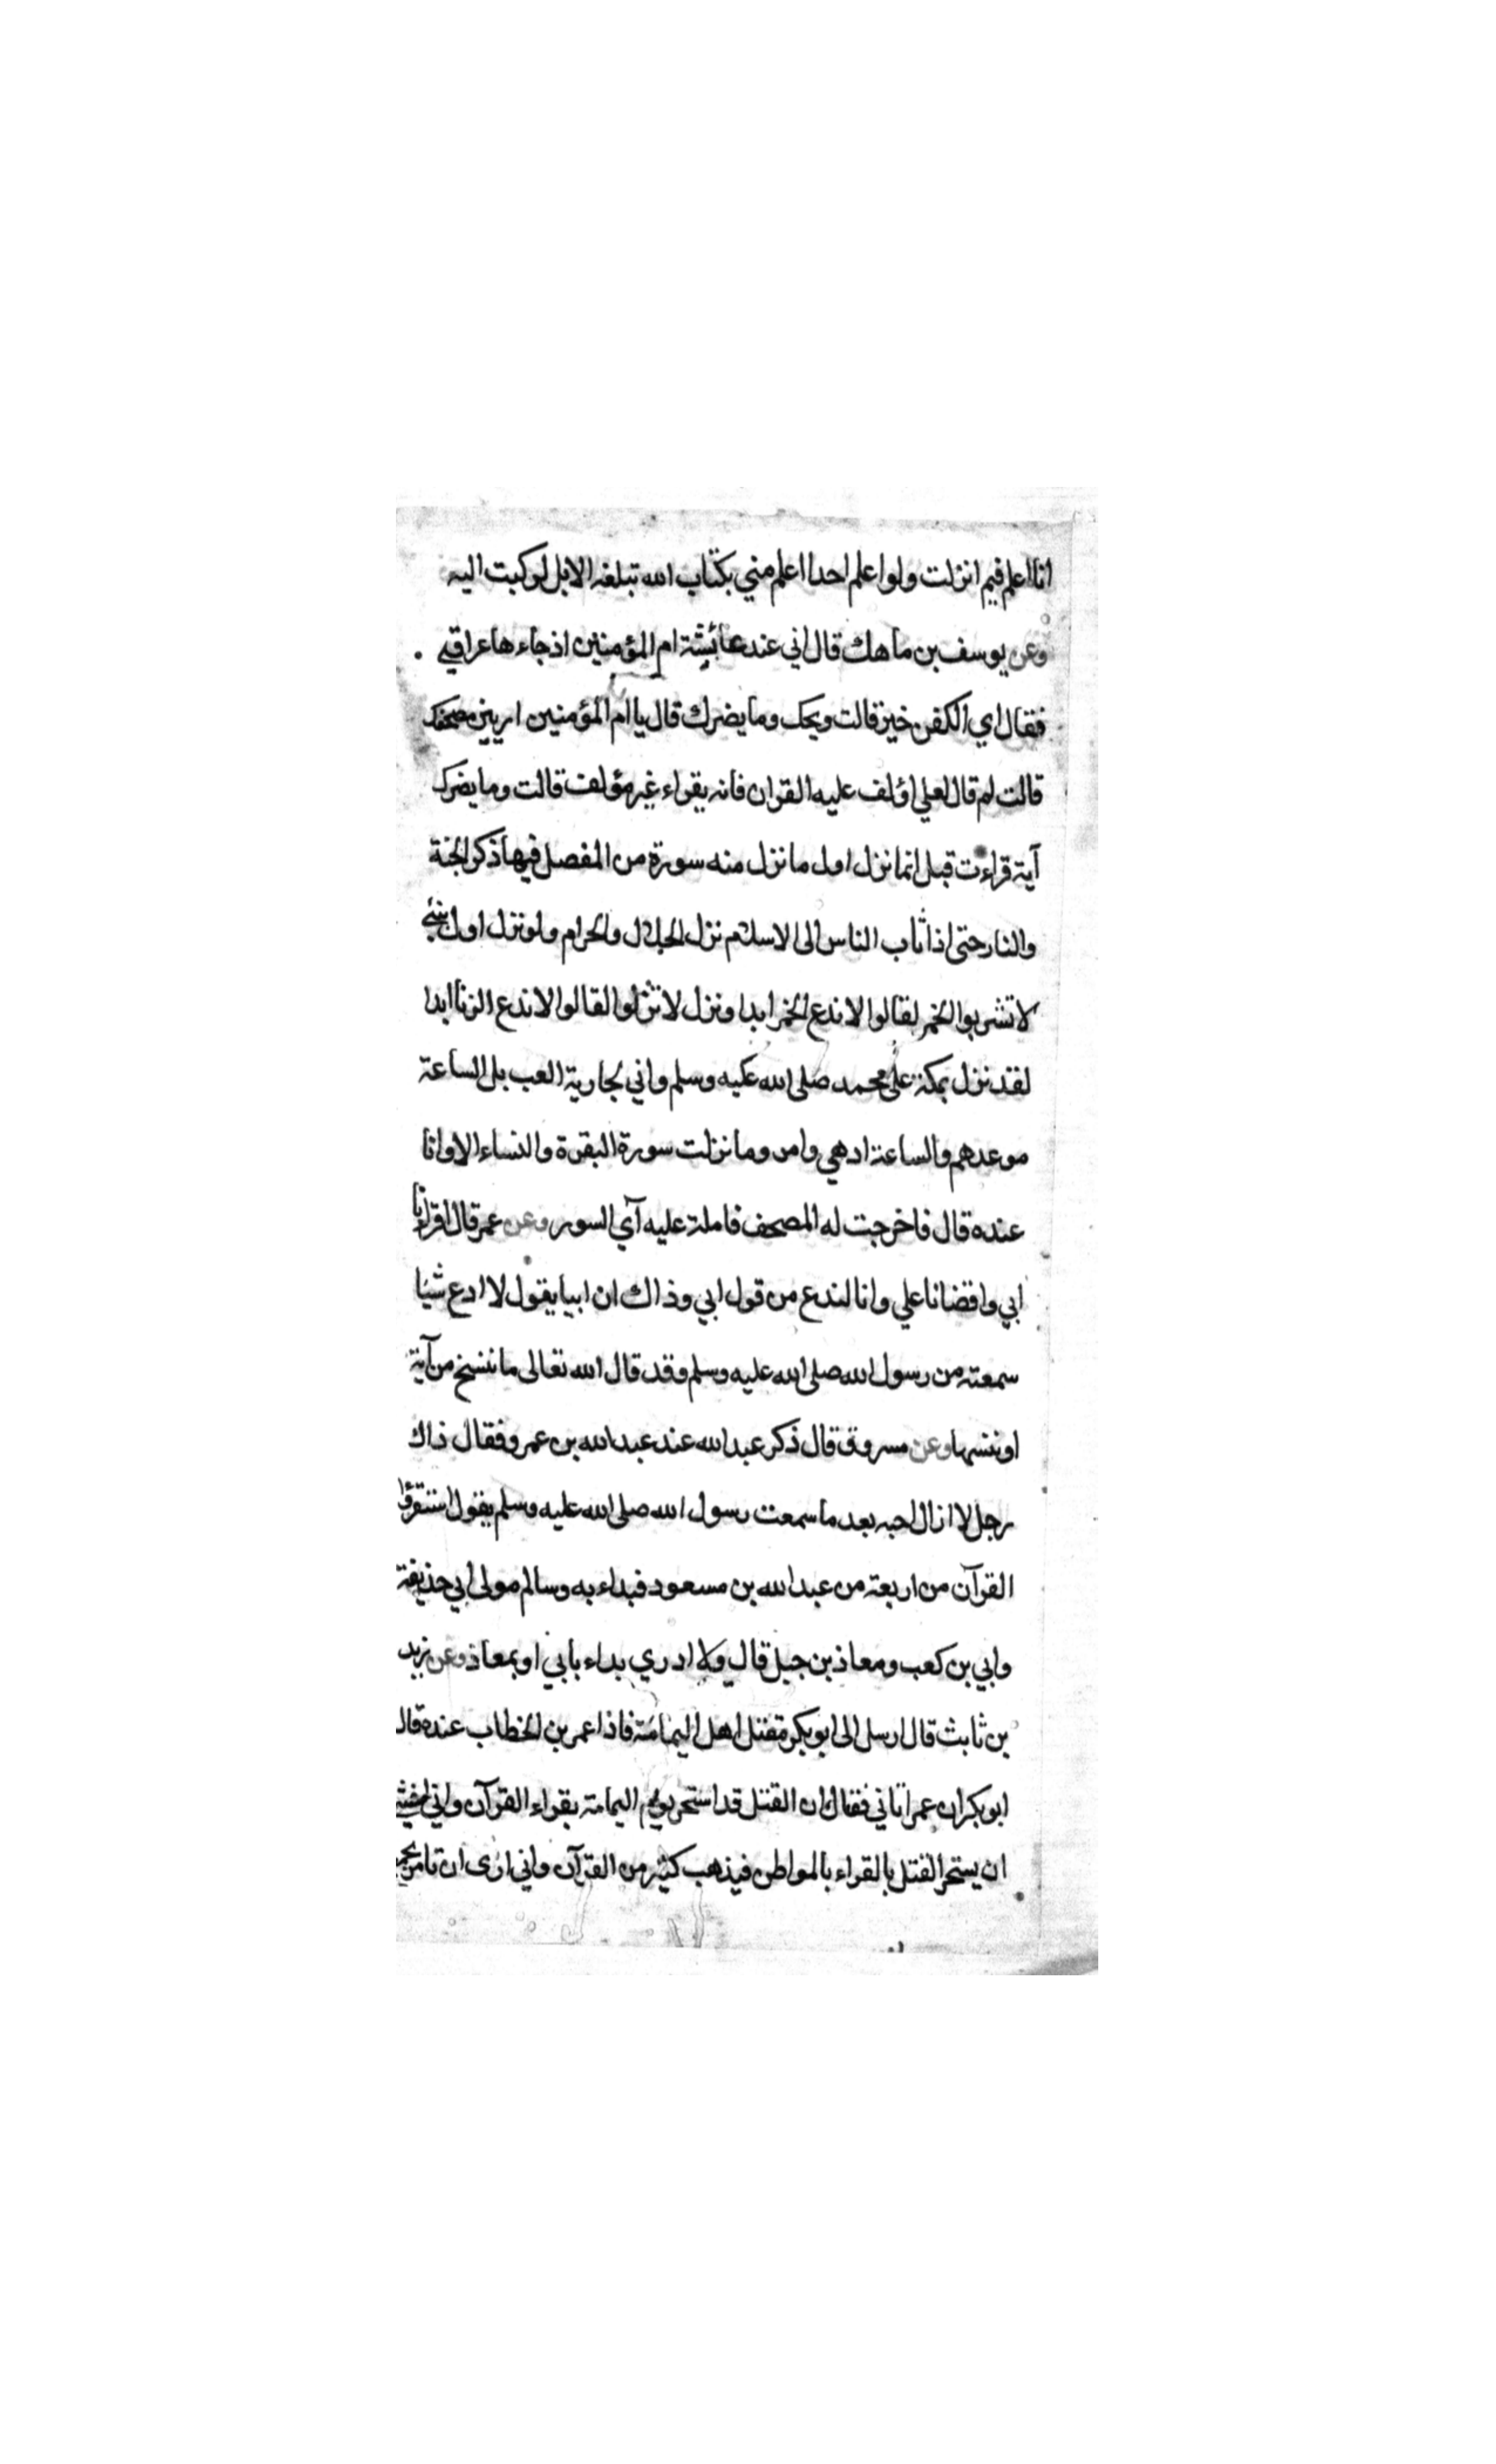 انا اعلم فيم انزلت ولو اعلم احدا اعلم مني بكتاب الله تبلغه الابل لركبت اليه
وعن يوسف بن ماهك قال اني عند عائشة ام المؤمنين اذ جاءها عراقي
فقال اي الكفن خير قالت ويحك وما يضرك قال يا ام المؤمنين اريني مصحفك
قالت لم قال لعلي اؤلف عليه القران فانه يقراء غير مؤلف قالت وما يضرك
آية قراءت قبل انما نزل اول ما نزل منه سورة من المفصل فيها ذكر الجنة
والنار حتى اذا ثاب الناس الى الاسلام نزل الحلال والحرام ولو نزل اول شئ
لا تشربوا الخمر لقالوا لا ندع الخمر ابدا ونزل لا تزنوا لقالوا لا ندع الزنا ابدا
لقد نزل بمكة على محمد صلى الله عليه وسلم واني لجارية العب بل الساعة
موعدهم والساعة ادهي وامر وما نزلت سورة البقرة والنساء الا وانا
عنده قال فاخرجت له المصحف فاملت عليه آي السور وعن عمر قال اقرانا
ابي واقضانا علي وانا لندع من قول ابي وذاك ان ابيا يقول لا ادع شيئا
سمعته من رسول الله صلى الله عليه وسلم وقد قال الله تعالى ما ننسخ من آية
او ننسها وعن مسروق قال ذكر عبد الله عند عبد الله بن عمرو فقال ذاك
رجل لا ازال احبه بعد ما سمعت رسول الله صلى الله عليه وسلم يقول استقرؤا
القرآن من اربعة من عبد الله بن مسعود فبداء به وسالم مولى ابي حذيفة
وابي بن كعب ومعاذ بن جبل قال ولا ادري بداء بابي او بمعاذ وعن زيد
بن ثابث قال ارسل الى ابو بكر مقتل اهل اليمامة فاذا عمر بن الخطاب عنده قال
ابو بكر ان عمر اتاني فقال ان القتل قد استحر يوم اليمامة بقراء القرآن واني اخشى
ان يستحر القتل بالقراء بالمواطن فيذهب كثير من القرآن واني ارى ان تامر